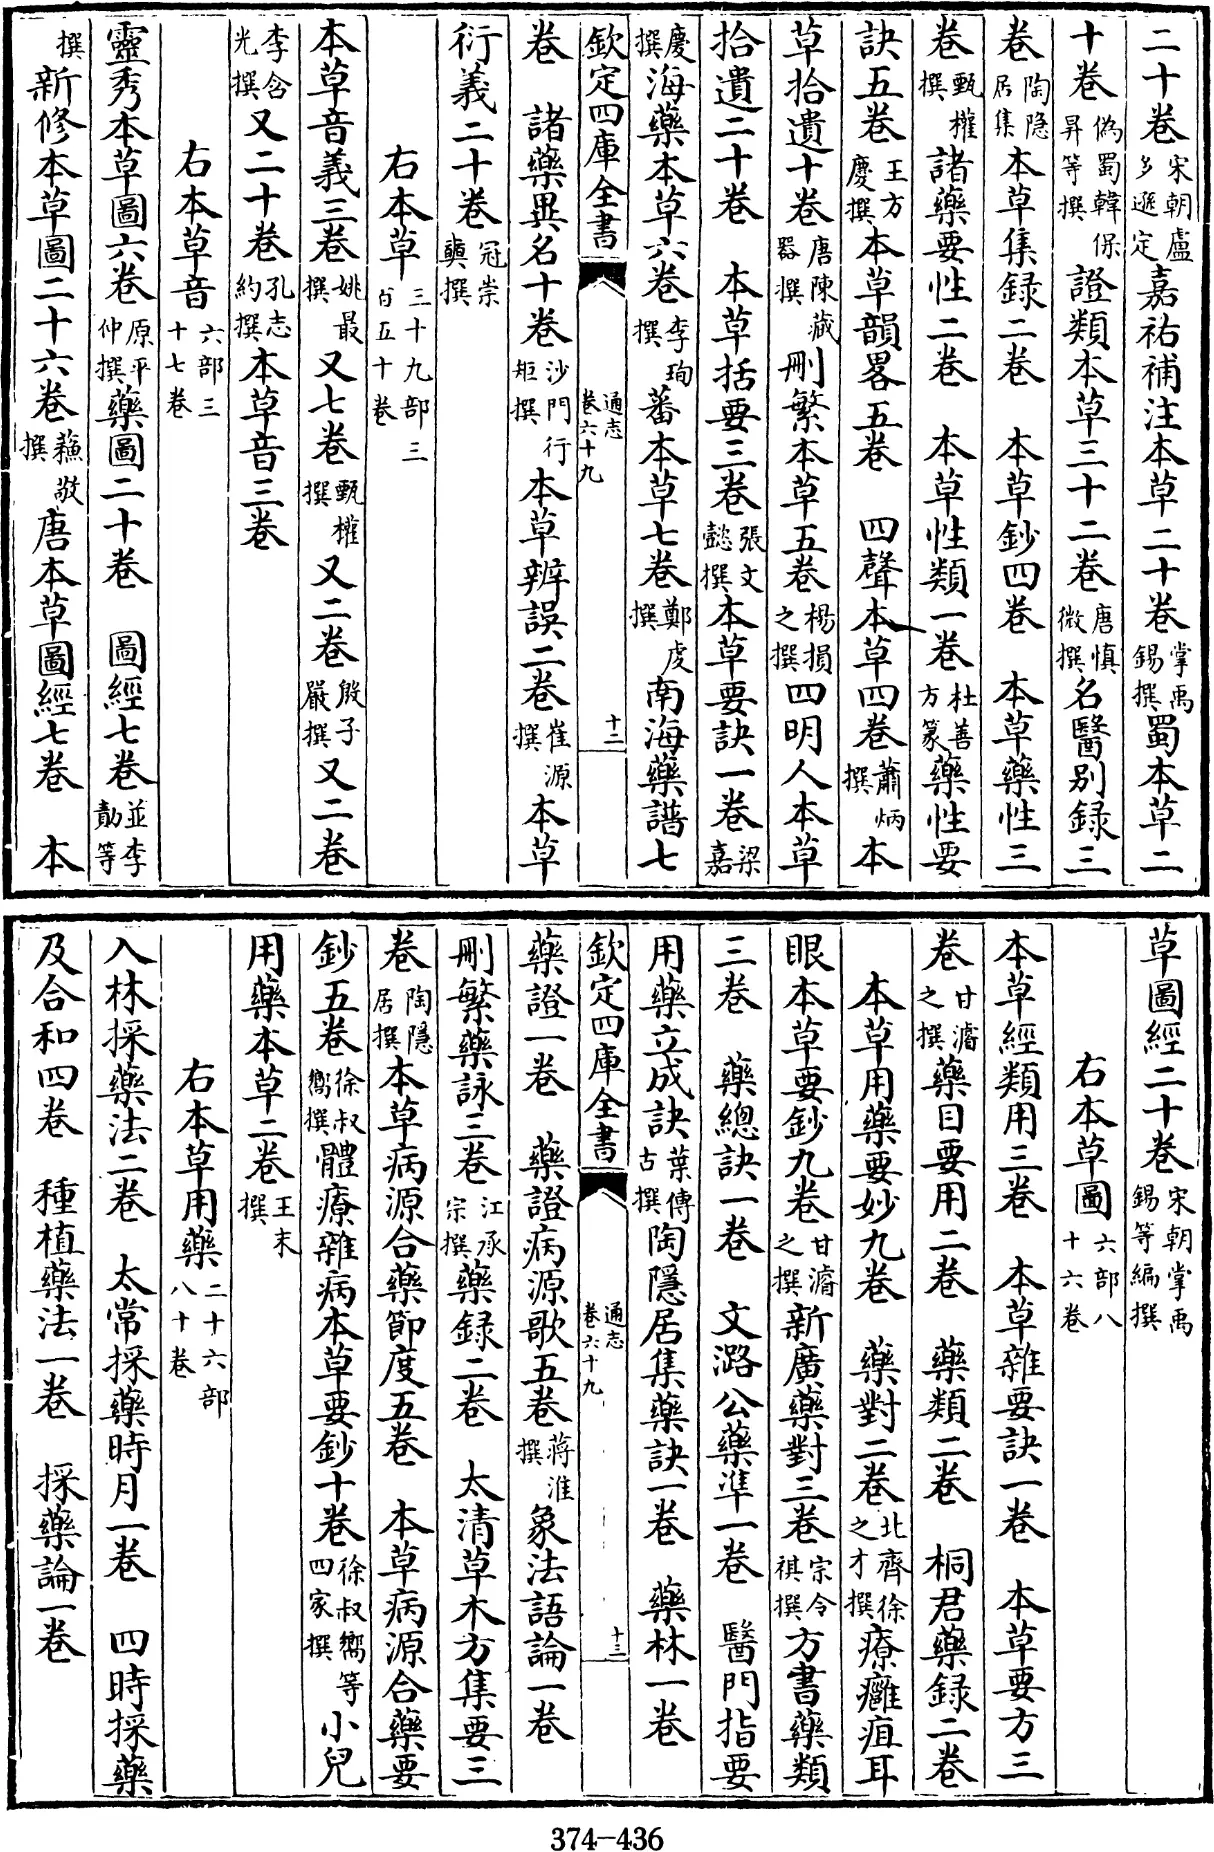 二十卷宋朝盧多遜定嘉祐補注本草二十卷掌禹錫撰蜀本草二
十卷偽蜀韓保昇等撰證類本草三十二卷唐慎微撰名醫别録三
卷陶隐居集本草集録二卷　本草鈔四卷　本草藥性三
卷甄權撰諸藥要性二卷　本草性類一卷杜善方篆藥性要
訣五卷王方慶撰本草韻畧五卷　四聲本草四卷蕭炳撰本
草拾遺十卷唐陳藏器撰刪繁本草五卷楊損之撰四明人本草
拾遺二十卷　本草括要三卷張文懿撰本草要訣一卷梁嘉
慶撰海藥本草六卷李珣撰蕃本草七卷鄭虔撰南海藥譜七
欽定四庫全書　通志卷六十九　十二
卷　諸藥異名十卷沙門行矩撰本草辨誤二卷崔源撰本草
衍義二十卷冦崇奭撰
右本草三十九部三百五十卷
本草音義三卷姚最撰又七卷甄權撰又二卷殷子嚴撰又二卷
李含光撰又二十卷孔志約撰本草音三卷
右本草音六部三十七卷
靈秀本草圖六卷原平仲撰藥圖二十卷　圖經七卷並李勣等
撰新修本草圖二十六卷蘓敬撰唐本草圖經七卷　本
草圖經二十卷宋朝掌禹錫等編撰
右本草圖六部八十六卷
本草經類用三卷　本草雜要訣一卷　本草要方三
卷甘濬之撰藥目要用二卷　藥類二卷　桐君藥録二卷
本草用藥要妙九卷　藥對二卷北齊徐之才撰療癰疽耳
眼本草要鈔九卷甘濬之撰新廣藥對三卷宗令祺撰方書藥類
三卷　藥總訣一卷　文潞公藥準一卷　醫門指要
用藥立成訣葉傳古撰陶隱居集藥訣一卷　藥林一卷
欽定四庫全書　通志卷六十九　十三
藥證一卷　藥證病源歌五卷蔣淮撰象法語論一卷
刪繁藥詠三卷江承宗撰藥録二卷　太清草木方集要三
卷陶隱居撰本草病源合藥節度五卷　本草病源合藥要
鈔五卷徐叔嚮撰體療雜病本草要鈔十卷徐叔嚮等四家撰小兒
用藥本草二卷王末撰
右本草用藥二十六部八十卷
入林採藥法二卷　太常採藥時月一卷　四時採藥
及合和四卷　種植藥法一卷　採藥論一卷
374-436